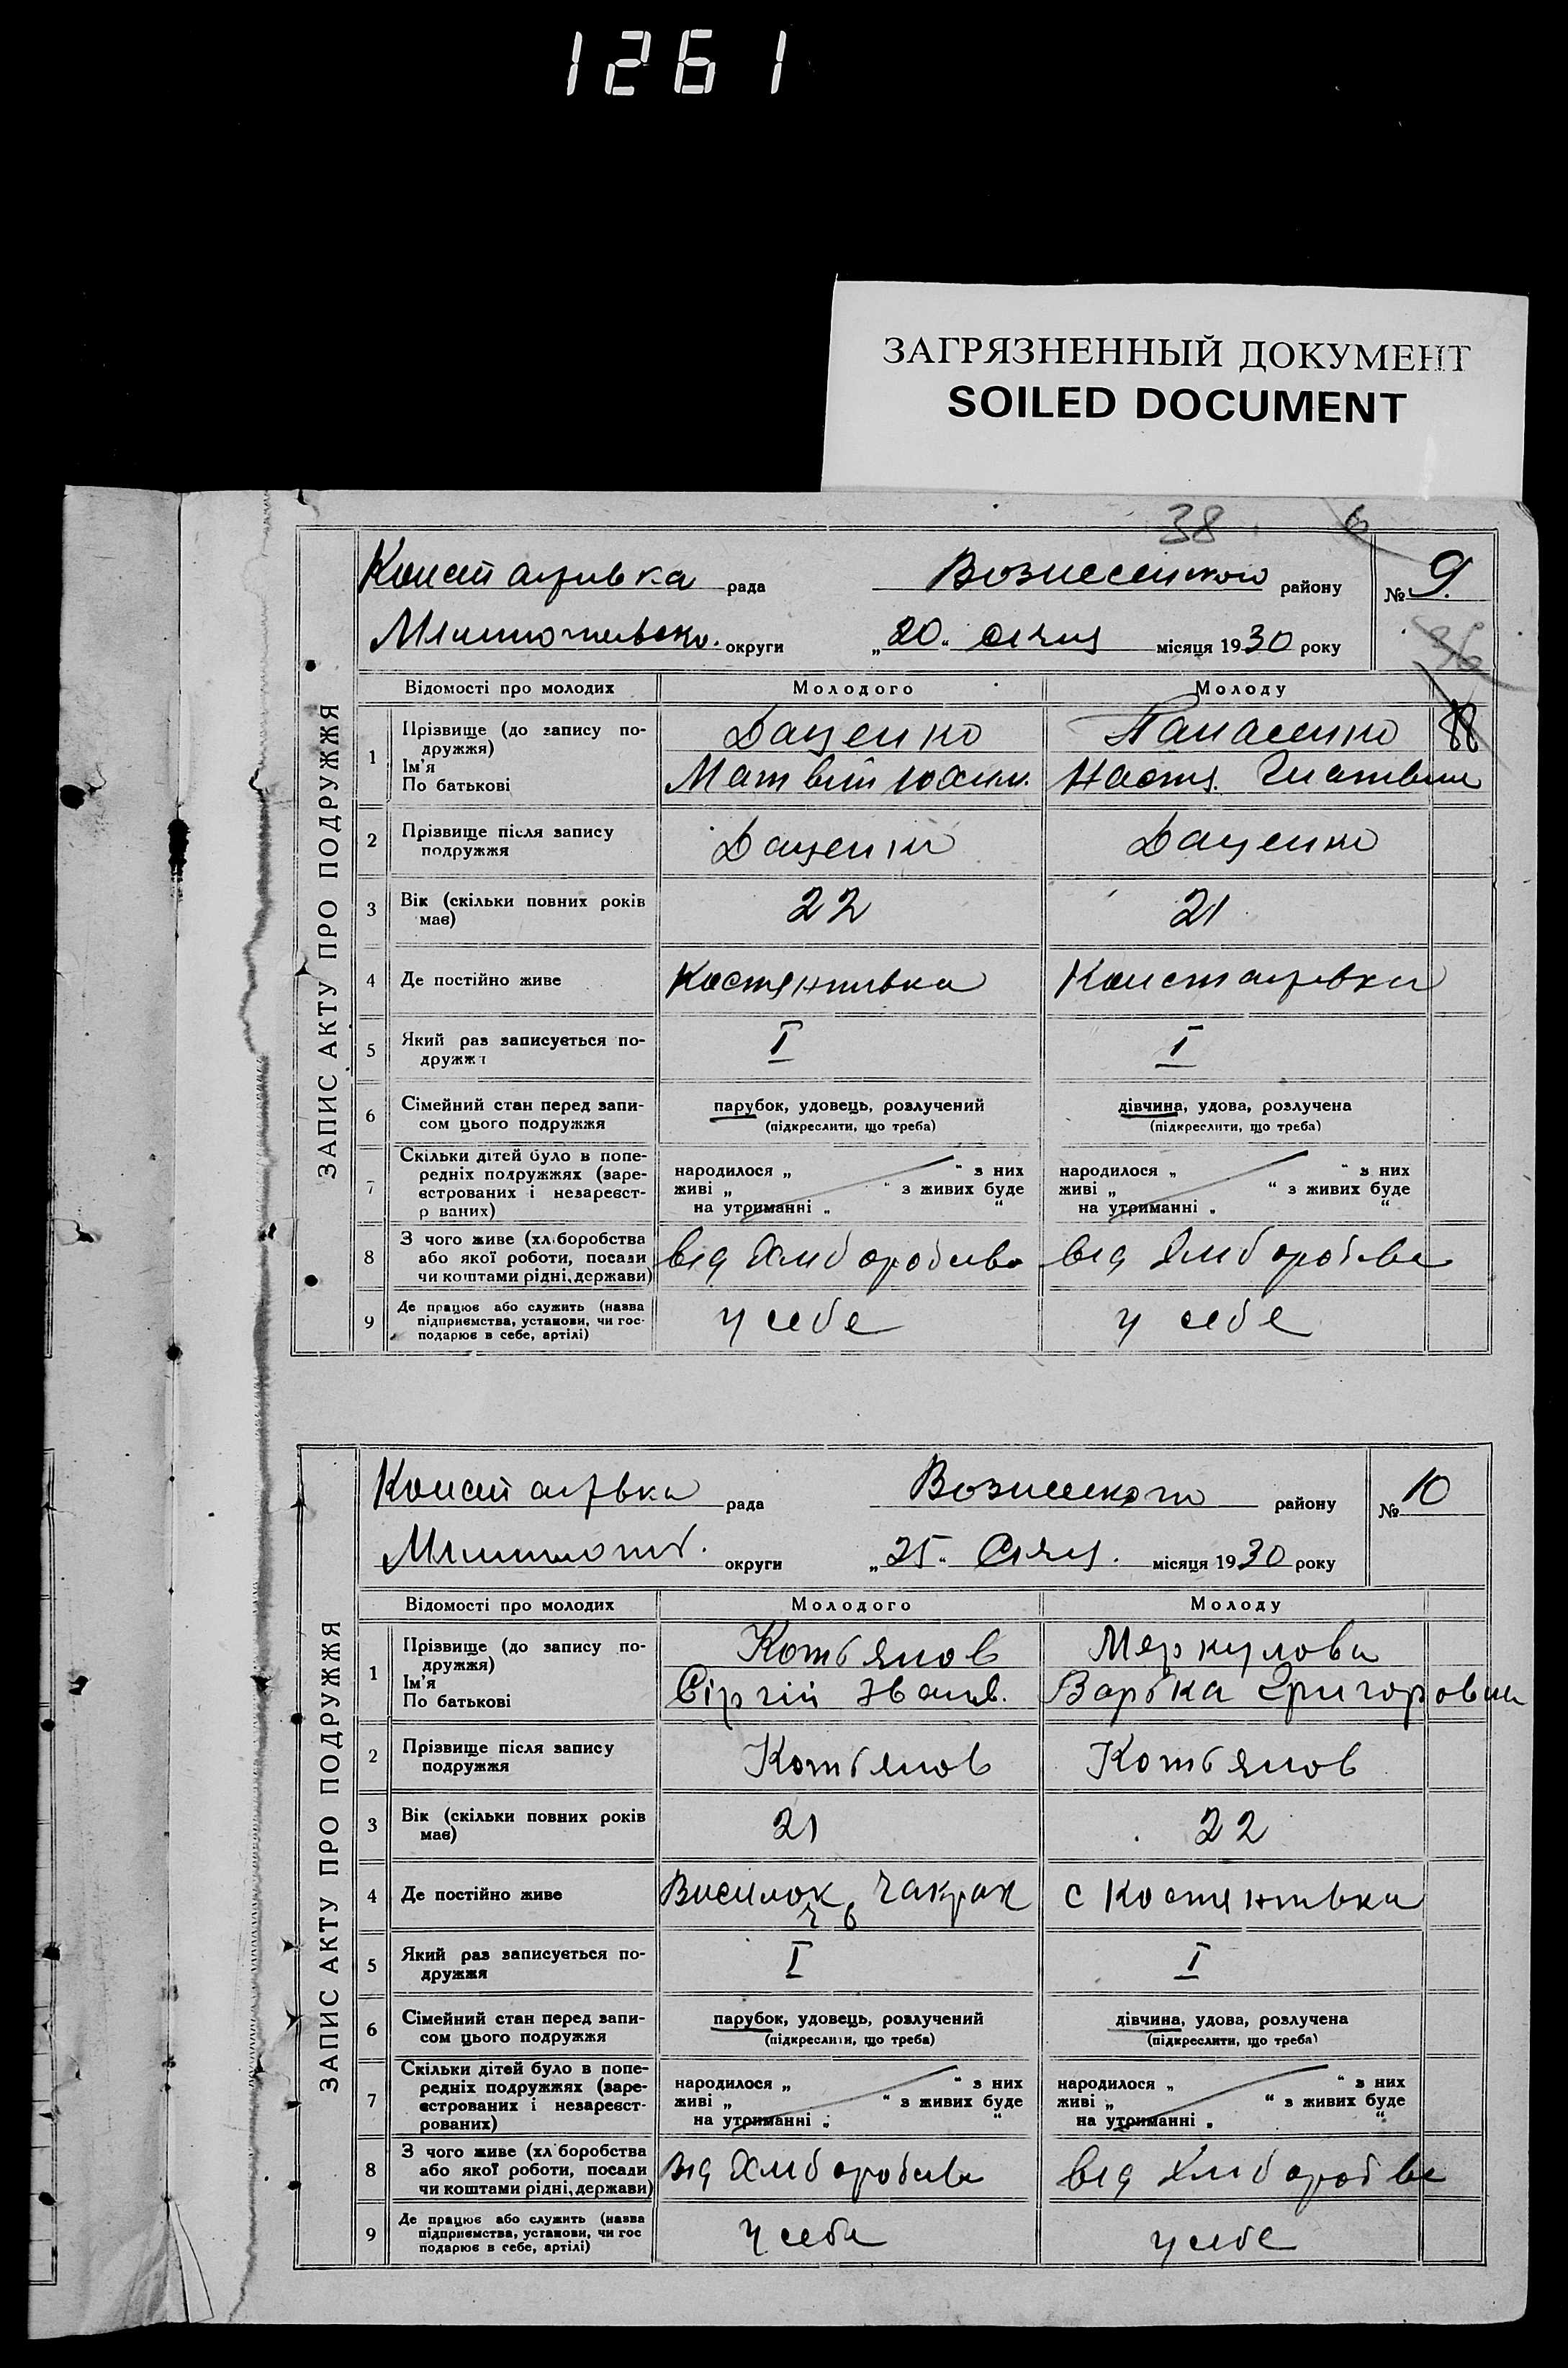 1261
ЗАГРЯЗНЕННЫЙ ДОКУМЕНТ
SOILED DOCUMENT
38 6
ЗАПИС АКТУ ПРО ПОДРУЖЖЯ
рада Вознесенского району № 9.
округи „20“ січня місяця 1930 року
36
Відомості про молодих Молодого Молоду
88
1 Прізвище (до запису по-
дружжя)
Ім'я
По батькові
Даценко Панасенко
Матвій Настя
2 Прізвище після запису
подружжя
Даценко Даценко
3 Вік (скільки повних років
має)
22 21
4 Де постійно живе Костянтивка
5 Який раз записується по-
дружжя
I I
6 Сімейний стан перед запи-
сом цього подружжя
парубок, удовець, розлучений дівчина, удова, розлучена
(підкреслити, що треба) (підкреслити, що треба)
7 Скільки дітей було в попе-
редніх подружжях (заре-
єстрованих і незареєст-
р ваних)
народилося „ “ з них народилося „ “ з них
живі „ “ з живих буде живі „ “ з живих буде
на утриманні „ “ на утриманні „ “
8 З чого живе (хліборобства
або якої роботи, посади
чи коштами рідні, держави)
від від
9 Де працює або служить (назва
підприємства, установи, чи гос-
подарює в себе, артілі)
у себе у себе
ЗАПИС АКТУ ПРО ПОДРУЖЖЯ
рада району № 10
округи „25“ Січня. місяця 1930 року
Відомості про молодих Молодого Молоду
1 Прізвище (до запису по-
дружжя)
Ім'я
По батькові
Котьянов Меркулова
Сіргій Іванв. Варька Григоровна
2 Прізвище після запису
подружжя
Котьянов Котьянов
3 Вік (скільки повних років
має)
21 22
4 Де постійно живе Виселок Чакрак с Костянтивка
5 Який раз записується по-
дружжя
I I
6 Сімейний стан перед запи-
сом цього подружжя
парубок, удовець, розлучений дівчина, удова, розлучена
(підкреслити, що треба) (підкреслити, що треба)
7 Скільки дітей було в попе-
редніх подружжях (заре-
єстрованих і незареєст-
рованих)
народилося „ “ з них народилося „ “ з них
живі „ “ з живих буде живі „ “ з живих буде
на утриманні „ “ на утриманні „ “
8 З чого живе (хл боробства
або якої роботи, посади
чи коштами рідні, держави)
від від
9 Де працює або служить (назва
підприємства, установи, чи гос
подарює в себе, артілі)
у себе у себе